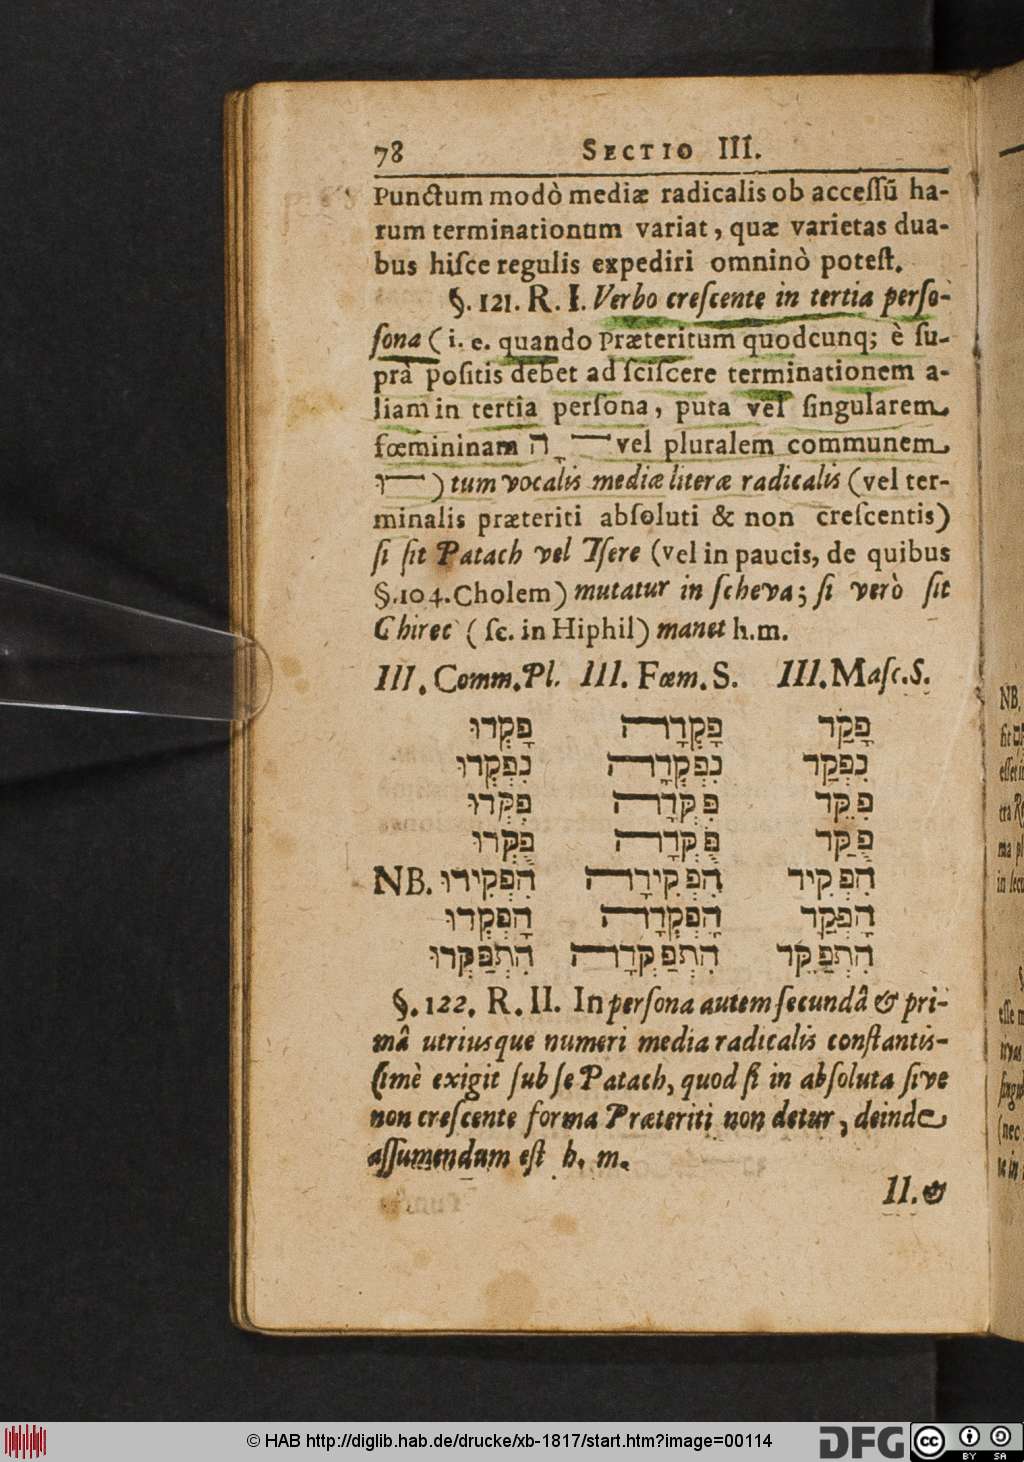 78 SECTIO III.
Punctum modò mediæ radicalis ob acceſſũ ha-
rum terminationum variat, quæ varietas dua-
bus hiſce regulis expediri omninò poteſt.
§. 121. R. I. Verbo creſcente in tertia perſo-
ſona (i. e. quando Præteritum quodcunq; è ſu-
prà poſitis debet ad ſciſcere terminationem a-
liam in tertiâ perſona, puta vel ſingularem
fœmininam הָ— vel pluralem communem
וּ—) tum vocalis mediæ literæ radicalis (vel ter-
minalis præteriti abſoluti & non creſcentis)
ſi ſit Patach vel Tſere (vel in paucis, de quibus
§.104. Cholem) mutatur in ſcheva; ſi verò ſit
Chirec (ſc. in Hiphil) manet h.m.
III. Comm. Pl. III. Fœm. S. III. Maſc. S.
פָּקַד פָּקְדָה פָּקְדוּ
נִפְקַד נִפְקְדָה נִפְקְדוּ
פִּקֵּד פִּקְּדָה פִּקְּדוּ
פֻּקַּד פֻּקְּדָה פֻּקְּדוּ
NB. הִפְקִיד הִפְקִידָה הִפְקִידוּ
הָפְקַד הָפְקְדָה הָפְקְדוּ
הִתְפַּקֵּד הִתְפַּקְּדָה הִתְפַּקְּדוּ
§. 122. R. II. In perſona autem ſecundâ & pri-
mâ utriusque numeri media radicalis conſtantis-
ſimè exigit ſub ſe Patach, quod ſi in abſoluta ſive
non creſcente forma Præteriti non detur, deinde
aſſumendum eſt h. m.
II. &
NB.
© HAB http://diglib.hab.de/drucke/xb-1817/start.htm?image=00114
DFG
cc BY SA